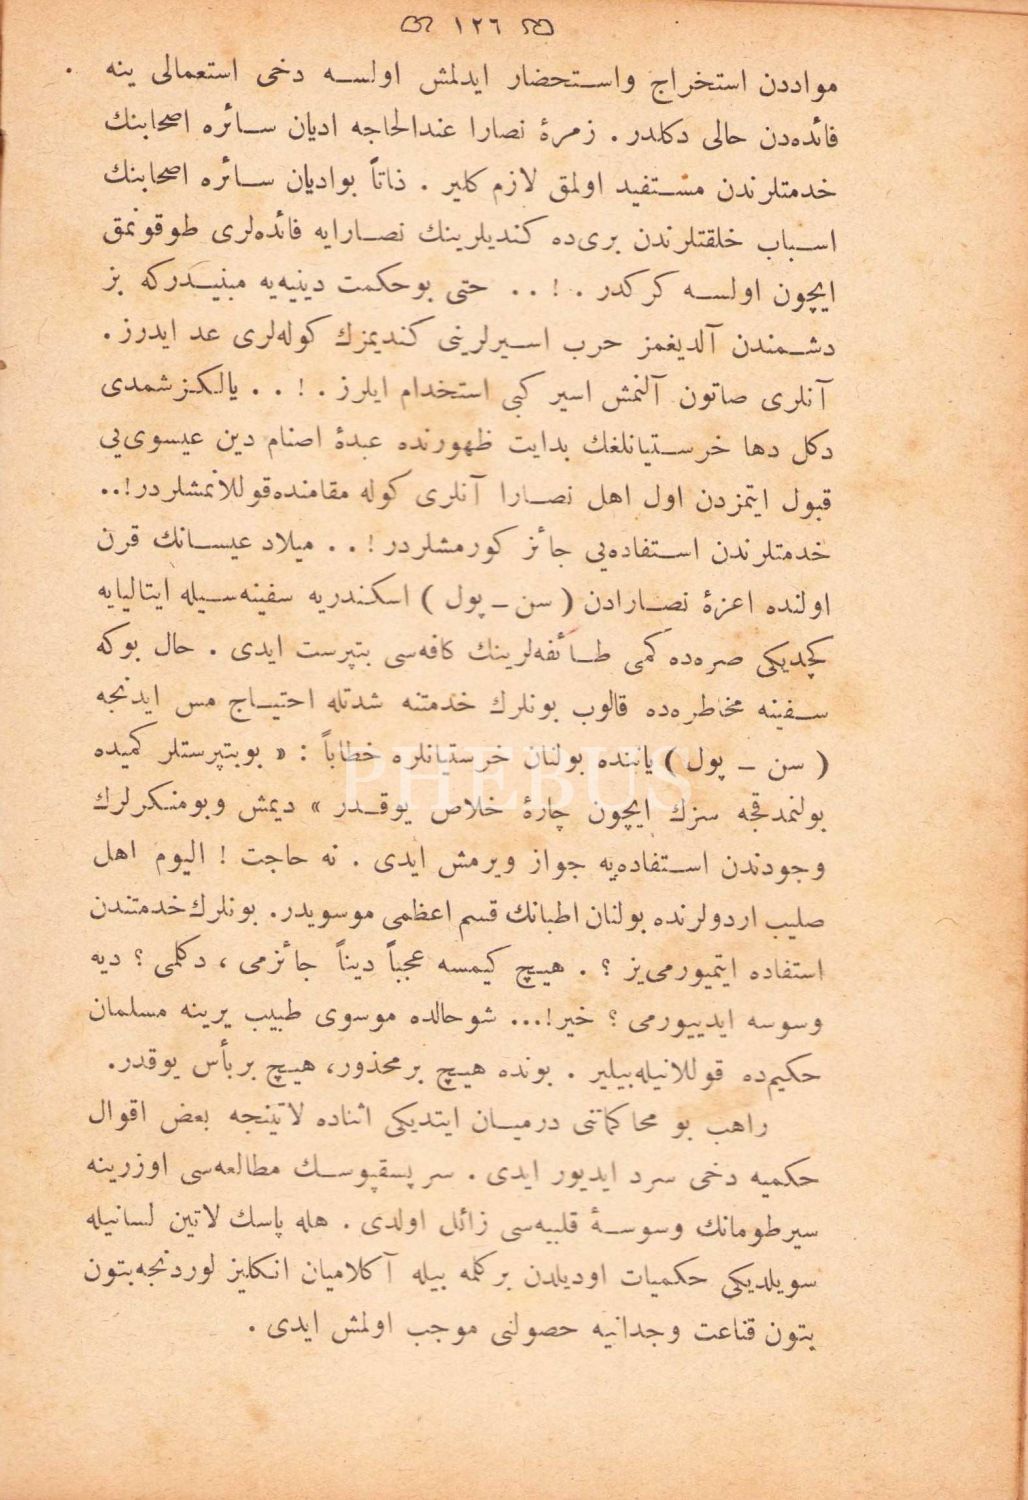 ١٢٦
موادن استخراج واستحضار ايدلمش اولسه دخی استعمالی ينه
فائده‌دن خالی دكلدر . زمرهٔ نصارا عندالحاجه اديان سائره اصحابنك
خدمتلرندن مستفيد اولمق لازم كلير . ذاتاً بو اديان سائره اصحابنك
اسباب خلقتلرندن بری‌ده كنديلرينك نصارايه فائده‌لری طوقونمق
ايچون اولسه كركدر . ! . . حتی بوحكمت دينيه‌يه مبنيدركه بز
دشمندن آلديغمز حرب اسيرلرينی كنديمزك كوله‌لری عد ايدرز .
آنلری صاتون آلنمش اسير كبی استخدام ايلرز . ! . . يالكزشمدی
دكل دها خرستيانلغك بدايت ظهورنده عبدهٔ اصنام دين عيسوی‌يی
قبول ايتمزدن اول اهل نصارا آنلری كوله مقامنده‌قوللانمشلردر!..
خدمتلرندن استفاده‌يی جائز كورمشلردر ! . . ميلاد عيسانك قرن
اولنده اعزهٔ نصارادن ( سن ـ پول ) اسكندريه سفينه‌سيله ايتاليايه
كچديكی صره‌ده كمی طائفه‌لرينك كافه‌سی بتپرست ايدی . حال بوكه
سفينه مخاطره‌ده قالوب بونلرك خدمتنه شدتله احتياج مس ايدنجه
( سن ـ پول ) ياننده بولنان خرستيانلره خطاباً : « بوبتپرستلر كميده
بولنمدقجه سزك ايچون چارهٔ خلاص يوقدر » ديمش وبومنكرلرك
وجودندن استفاده‌يه جواز ويرمش ايدی . نه حاجت ! اليوم اهل
صليب اردولرنده بولنان اطبانك قسم اعظمی موسويدر. بونلرك خدمتندن
استفاده ايتميورمی‌يز ؟ . هيچ كيمسه عجباً ديناً جائزمی ، دكلمی ؟ ديه
وسوسه ايدييورمی ؟ خير!... شوحالده موسوی طبيب يرينه مسلمان
حكيم‌ده قوللانيله‌بيلير . بونده هيچ برمحذور، هيچ بربأس يوقدر.
راهب بو محاكماتی درميان ايتديكی اثناده لاتينجه بعض اقوال
حكميه دخی سرد ايديور ايدی . سر پسقپوسك مطالعه‌سی اوزرينه
سيرطومانك وسوسهٔ قلبيه‌سی زائل اولدی . هله پاسك لاتين لسانيله
سويلديكی حكميات اوديلدن بركلمه بيله آكلاميان انكليز لوردنجه‌بتون
بتون قناعت وجدانيه حصولنی موجب اولمش ايدی .
PHEBUS